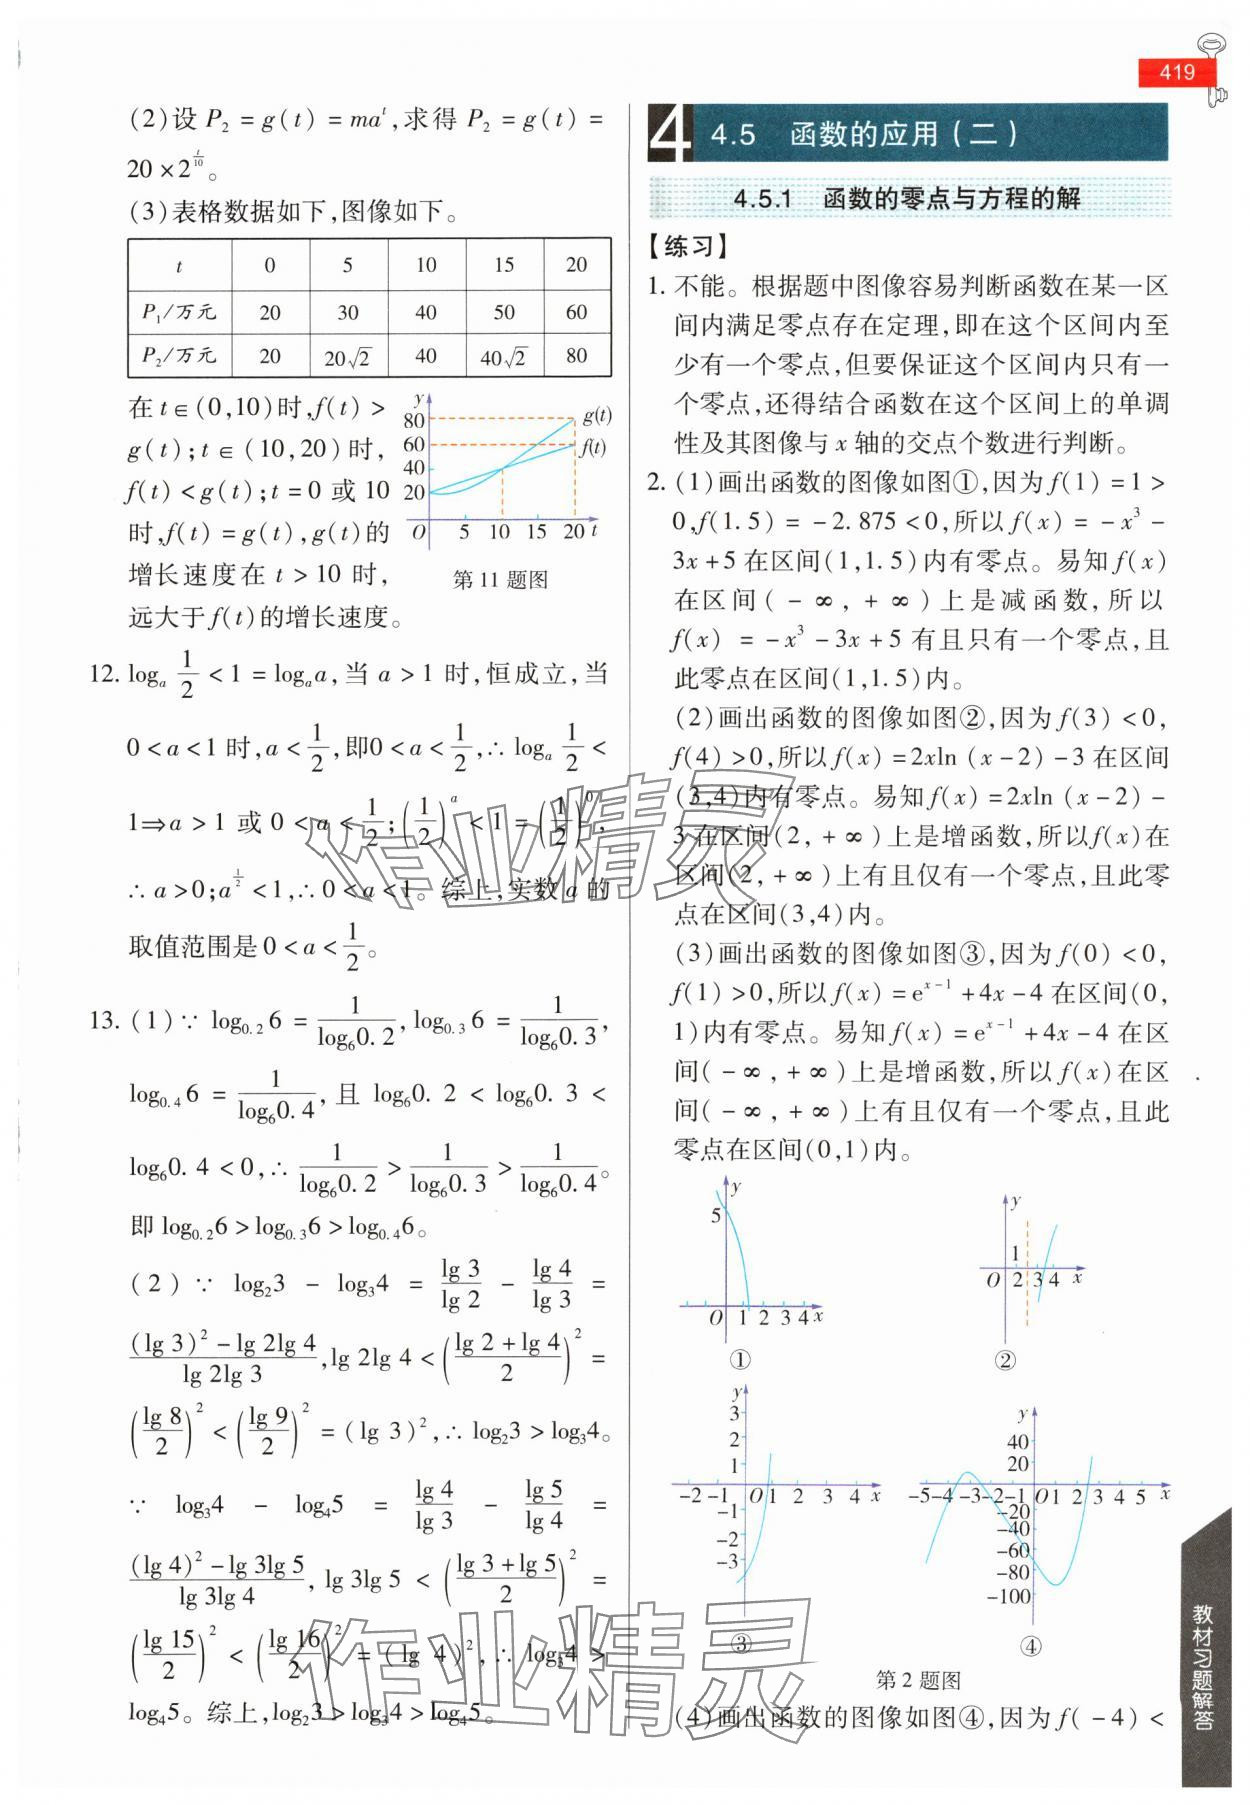 419
(2)设 P₂ = g(t) = maᵗ,求得 P₂ = g(t) =
20×2^(t/10)。
(3)表格数据如下,图像如下。
t 0 5 10 15 20
P₁/万元 20 30 40 50 60
P₂/万元 20 20√2 40 40√2 80
在 t∈(0,10)时,f(t) >
g(t);t∈(10,20)时,
f(t) < g(t);t=0 或 10
时,f(t) = g(t),g(t)的
增长速度在 t > 10 时,
远大于 f(t)的增长速度。
y
80
60
40
20
O 5 10 15 20 t
g(t)
f(t)
第 11 题图
12. logₐ 1/2 < 1 = logₐa,当 a > 1 时,恒成立,当
0 < a < 1 时,a < 1/2,即0 < a < 1/2,∴ logₐ 1/2 <
1⇒a > 1 或 0 < a < 1/2;(1/2)^a < 1 = (1/2)^0,
∴ a > 0;a^(1/2) < 1,∴ 0 < a < 1。综上,实数 a 的
取值范围是 0 < a < 1/2。
13. (1)∵ log₀.₂6 = 1/log₆0.2,log₀.₃6 = 1/log₆0.3,
log₀.₄6 = 1/log₆0.4,且 log₆0.2 < log₆0.3 <
log₆0.4 < 0,∴ 1/log₆0.2 > 1/log₆0.3 > 1/log₆0.4。
即 log₀.₂6 > log₀.₃6 > log₀.₄6。
(2)∵ log₂3 - log₃4 = lg 3/lg 2 - lg 4/lg 3 =
((lg 3)² - lg 2lg 4)/(lg 2lg 3),lg 2lg 4 < ((lg 2 + lg 4)/2)² =
(lg 8/2)² < (lg 9/2)² = (lg 3)²,∴ log₂3 > log₃4。
∵ log₃4 - log₄5 = lg 4/lg 3 - lg 5/lg 4 =
((lg 4)² - lg 3lg 5)/(lg 3lg 4),lg 3lg 5 < ((lg 3 + lg 5)/2)² =
(lg 15/2)² < (lg 16/2)² = (lg 4)²,∴ log₃4 >
log₄5。综上,log₂3 > log₃4 > log₄5。
4 4.5 函数的应用(二)
4.5.1 函数的零点与方程的解
【练习】
1. 不能。根据题中图像容易判断函数在某一区
间内满足零点存在定理,即在这个区间内至
少有一个零点,但要保证这个区间内只有一
个零点,还得结合函数在这个区间上的单调
性及其图像与 x 轴的交点个数进行判断。
2. (1)画出函数的图像如图①,因为 f(1) = 1 >
0,f(1.5) = -2.875 < 0,所以 f(x) = -x³ -
3x + 5 在区间(1,1.5)内有零点。易知 f(x)
在区间(-∞,+∞)上是减函数,所以
f(x) = -x³ - 3x + 5 有且只有一个零点,且
此零点在区间(1,1.5)内。
(2)画出函数的图像如图②,因为 f(3) < 0,
f(4) > 0,所以 f(x) = 2xln (x - 2) - 3 在区间
(3,4)内有零点。易知 f(x) = 2xln (x - 2) -
3 在区间(2,+∞)上是增函数,所以 f(x)在
区间(2,+∞)上有且仅有一个零点,且此零
点在区间(3,4)内。
(3)画出函数的图像如图③,因为 f(0) < 0,
f(1) > 0,所以 f(x) = eˣ⁻¹ + 4x - 4 在区间(0,
1)内有零点。易知 f(x) = eˣ⁻¹ + 4x - 4 在区
间(-∞,+∞)上是增函数,所以 f(x)在区
间(-∞,+∞)上有且仅有一个零点,且此
零点在区间(0,1)内。
y
5
O 1 2 3 4 x
①
y
1
O 2 3 4 x
②
y
3
2
1
-2 -1 O 1 2 3 4 x
-1
-2
-3
③
y
40
20
-5 -4 -3 -2 -1 O 1 2 3 4 5 x
-20
-40
-60
-80
-100
④
第 2 题图
(4)画出函数的图像如图④,因为 f(-4) <
教材习题解答
作业精灵
作业精灵